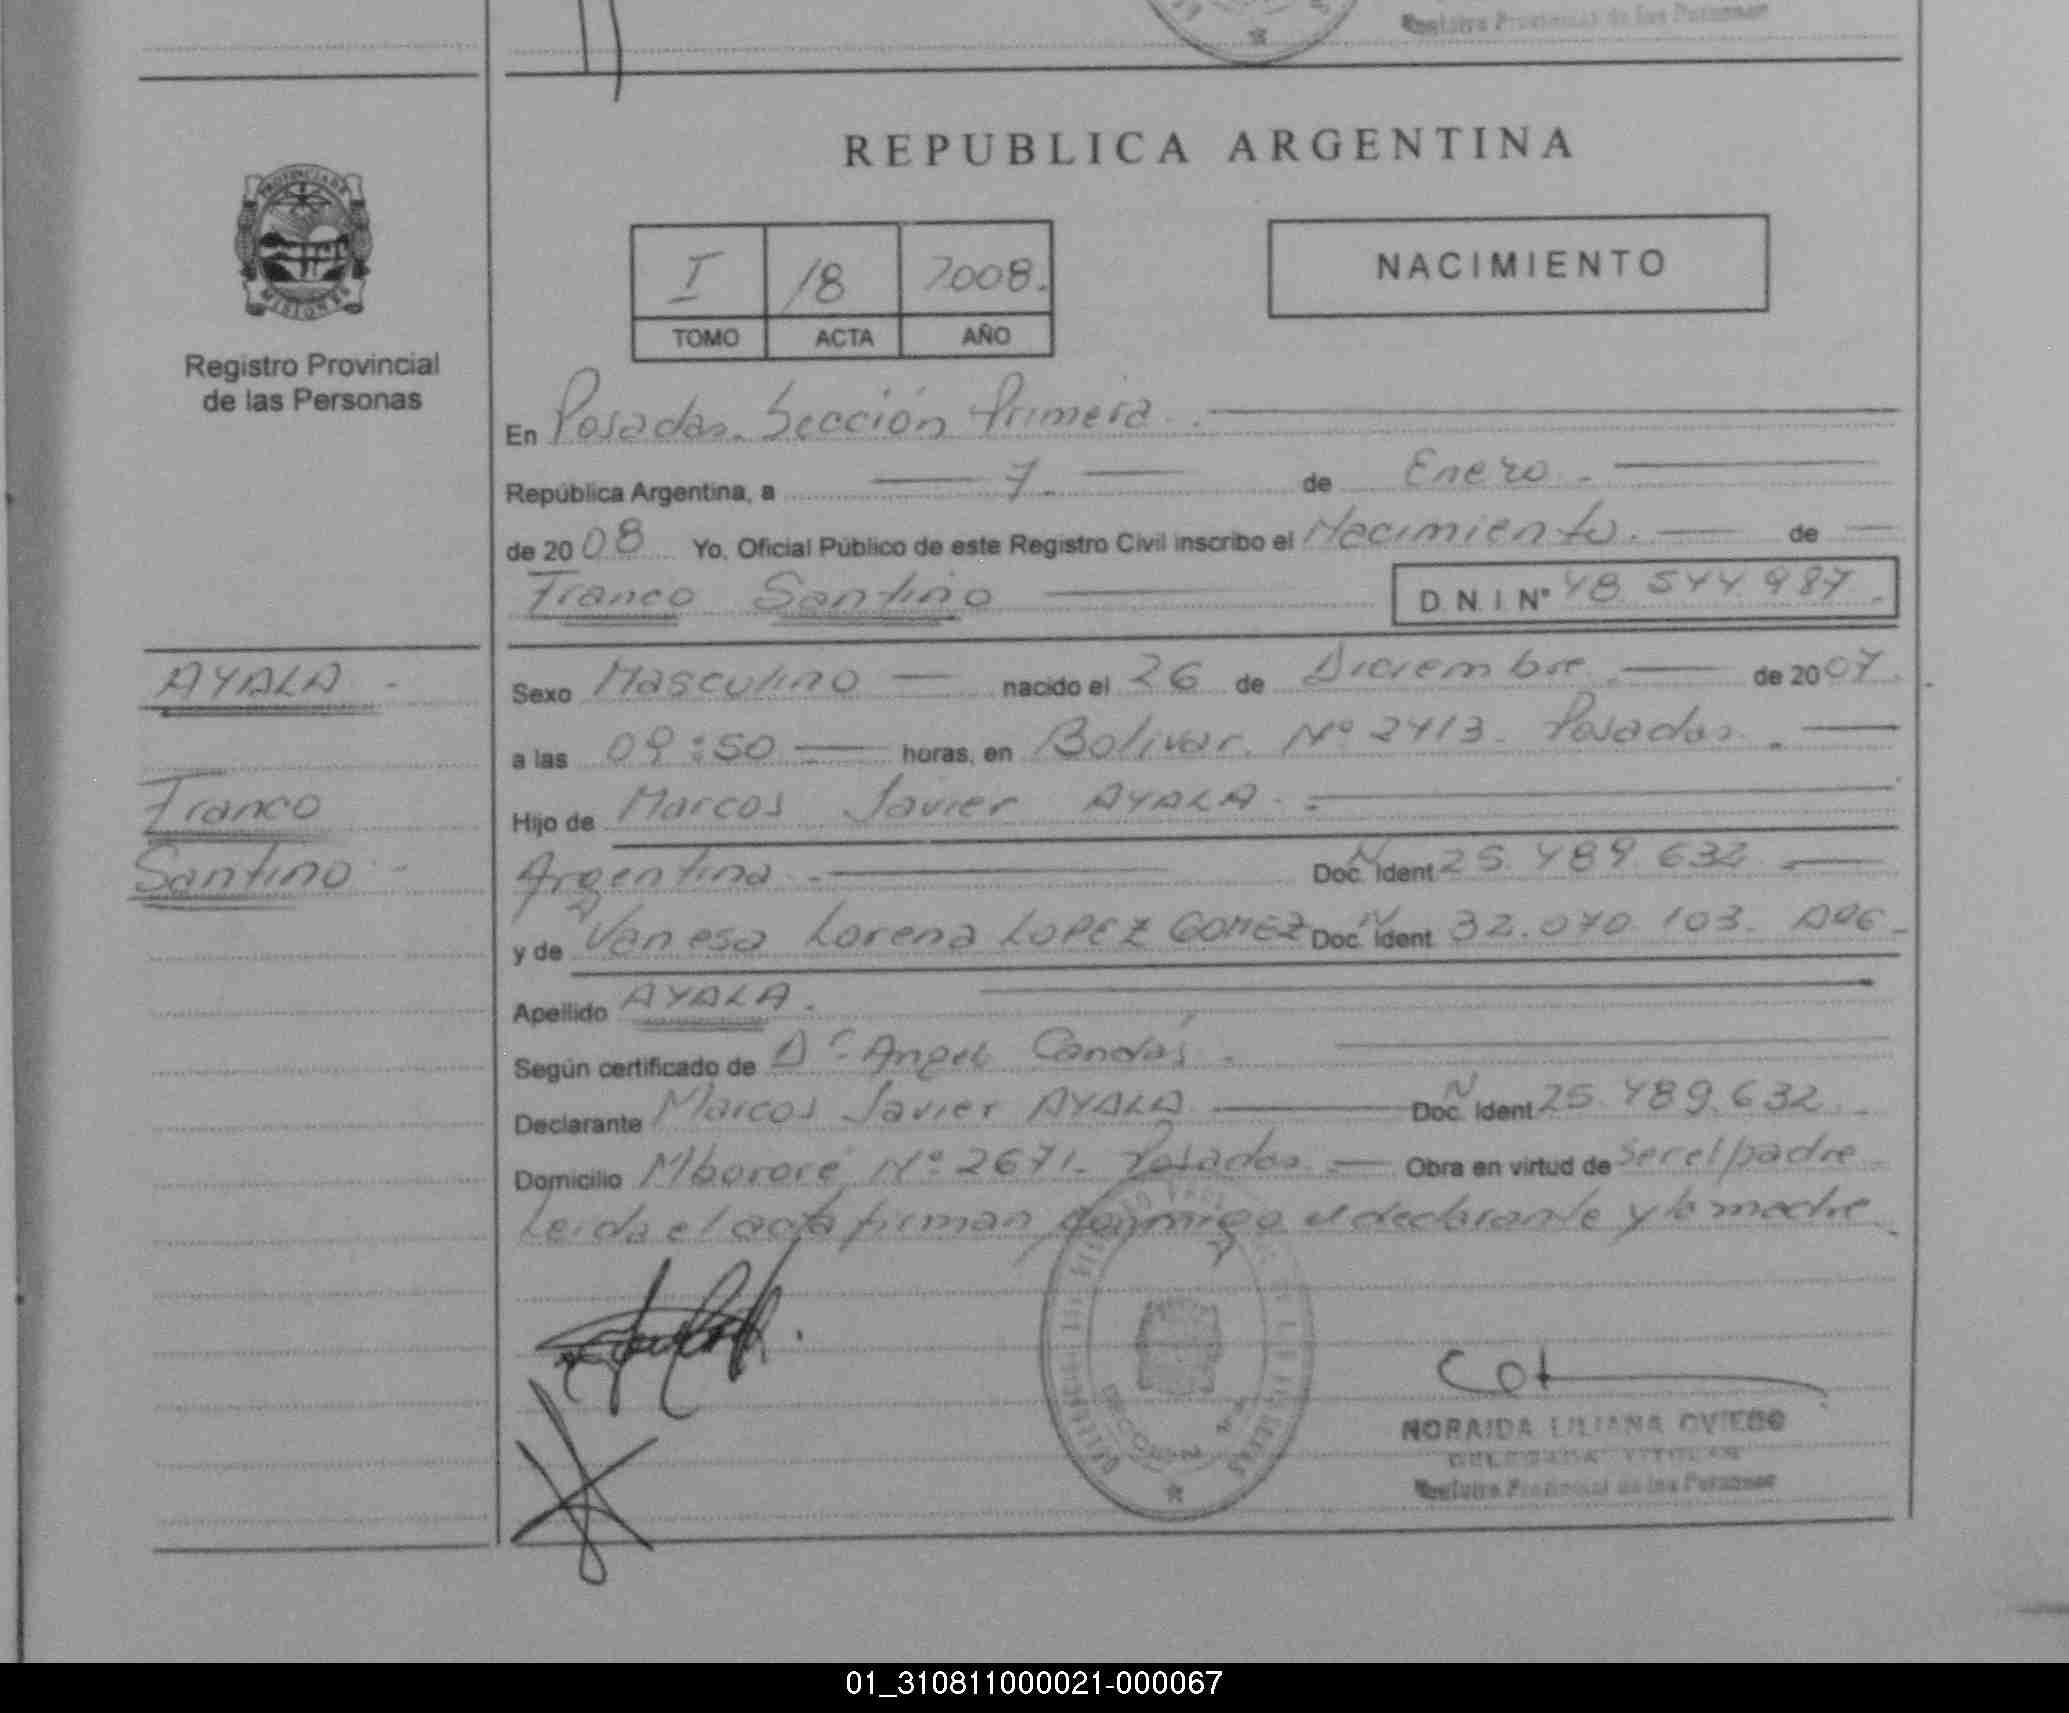 Registro Provincial de las Personas
REPUBLICA ARGENTINA
PROVINCIA DE
MISIONES
Registro Provincial
de las Personas
I 18 2008.
TOMO ACTA AÑO
NACIMIENTO
En Posadas. Sección Primera.
República Argentina, a 7. de Enero.
de 2008 Yo, Oficial Público de este Registro Civil inscribo el Nacimiento. de
Franco Santino D.N.I. Nº 48 544 987.
AYALA
Franco
Santino
Sexo Masculino nacido el 26 de Diciembre. de 2007.
a las 09:50 horas, en Bolivar. Nº 2413. Posadas.
Hijo de Marcos Javier AYALA.
Argentina Doc. Ident N 25.489.632
y de Vanesa Lorena LOPEZ GOMEZ Doc. Ident N 32.070.103.
Apellido AYALA.
Según certificado de Dr. Angel Candás.
Declarante Marcos Javier AYALA Doc. Ident N 25.489.632
Domicilio Mbororé Nº 2671. Posadas Obra en virtud de ser el padre
Leida el acta firman conmigo el declarante y la madre
NORAIDA LILIANA OVIEDO
DELEGADA TITULAR
Registro Provincial de las Personas
01_310811000021-000067